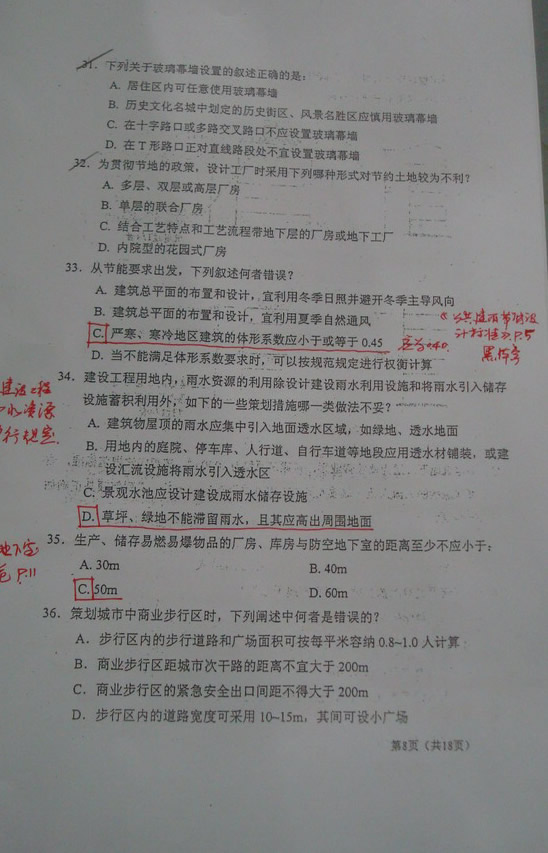 31. 下列关于玻璃幕墙设置的叙述正确的是:
A. 居住区内可任意使用玻璃幕墙
B. 历史文化名城中划定的历史街区、风景名胜区应慎用玻璃幕墙
C. 在十字路口或多路交叉路口不应设置玻璃幕墙
D. 在T形路口正对直线路段处不宜设置玻璃幕墙
32. 为贯彻节地的政策，设计工厂时采用下列哪种形式对节约土地较为不利?
A. 多层、双层或高层厂房
B. 单层的联合厂房
C. 结合工艺特点和工艺流程带地下层的厂房或地下工厂
D. 内院型的花园式厂房
33. 从节能要求出发，下列叙述何者错误?
A. 建筑总平面的布置和设计，宜利用冬季日照并避开冬季主导风向
B. 建筑总平面的布置和设计，宜利用夏季自然通风
C. 严寒、寒冷地区建筑的体形系数应小于或等于 0.45
D. 当不能满足体形系数要求时，可以按规范规定进行权衡计算
34. 建设工程用地内，雨水资源的利用除设计建设雨水利用设施和将雨水引入储存
设施蓄积利用外，如下的一些策划措施哪一类做法不妥?
A. 建筑物屋顶的雨水应集中引入地面透水区域，如绿地、透水地面
B. 用地内的庭院、停车库、人行道、自行车道等地段应用透水材铺装，或建
设汇流设施将雨水引入透水区
C. 景观水池应设计建设成雨水储存设施
D. 草坪、绿地不能滞留雨水，且其应高出周围地面
35. 生产、储存易燃易爆物品的厂房、库房与防空地下室的距离至少不应小于:
A. 30m B. 40m
C. 50m D. 60m
36. 策划城市中商业步行区时，下列阐述中何者是错误的?
A. 步行区内的步行道路和广场面积可按每平米容纳 0.8~1.0 人计算
B. 商业步行区距城市次干路的距离不宜大于 200m
C. 商业步行区的紧急安全出口间距不得大于 200m
D. 步行区内的道路宽度可采用 10~15m，其间可设小广场
第8页（共18页）